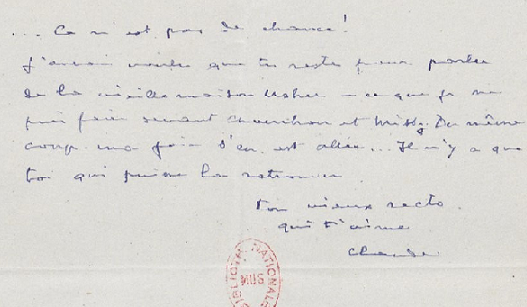 ... Ce n'est pas de chance!
J'aurais voulu que tu restes pour parler
de la vieille maison Usher – ce que je ne
puis faire devant et Missy. Du même
coup ma joie s'en est allée... Il n'y a que
toi qui puisse la retenir
Ton vieux
qui t'aime
Claude
BIBLIOTH NATIONALE
MUS